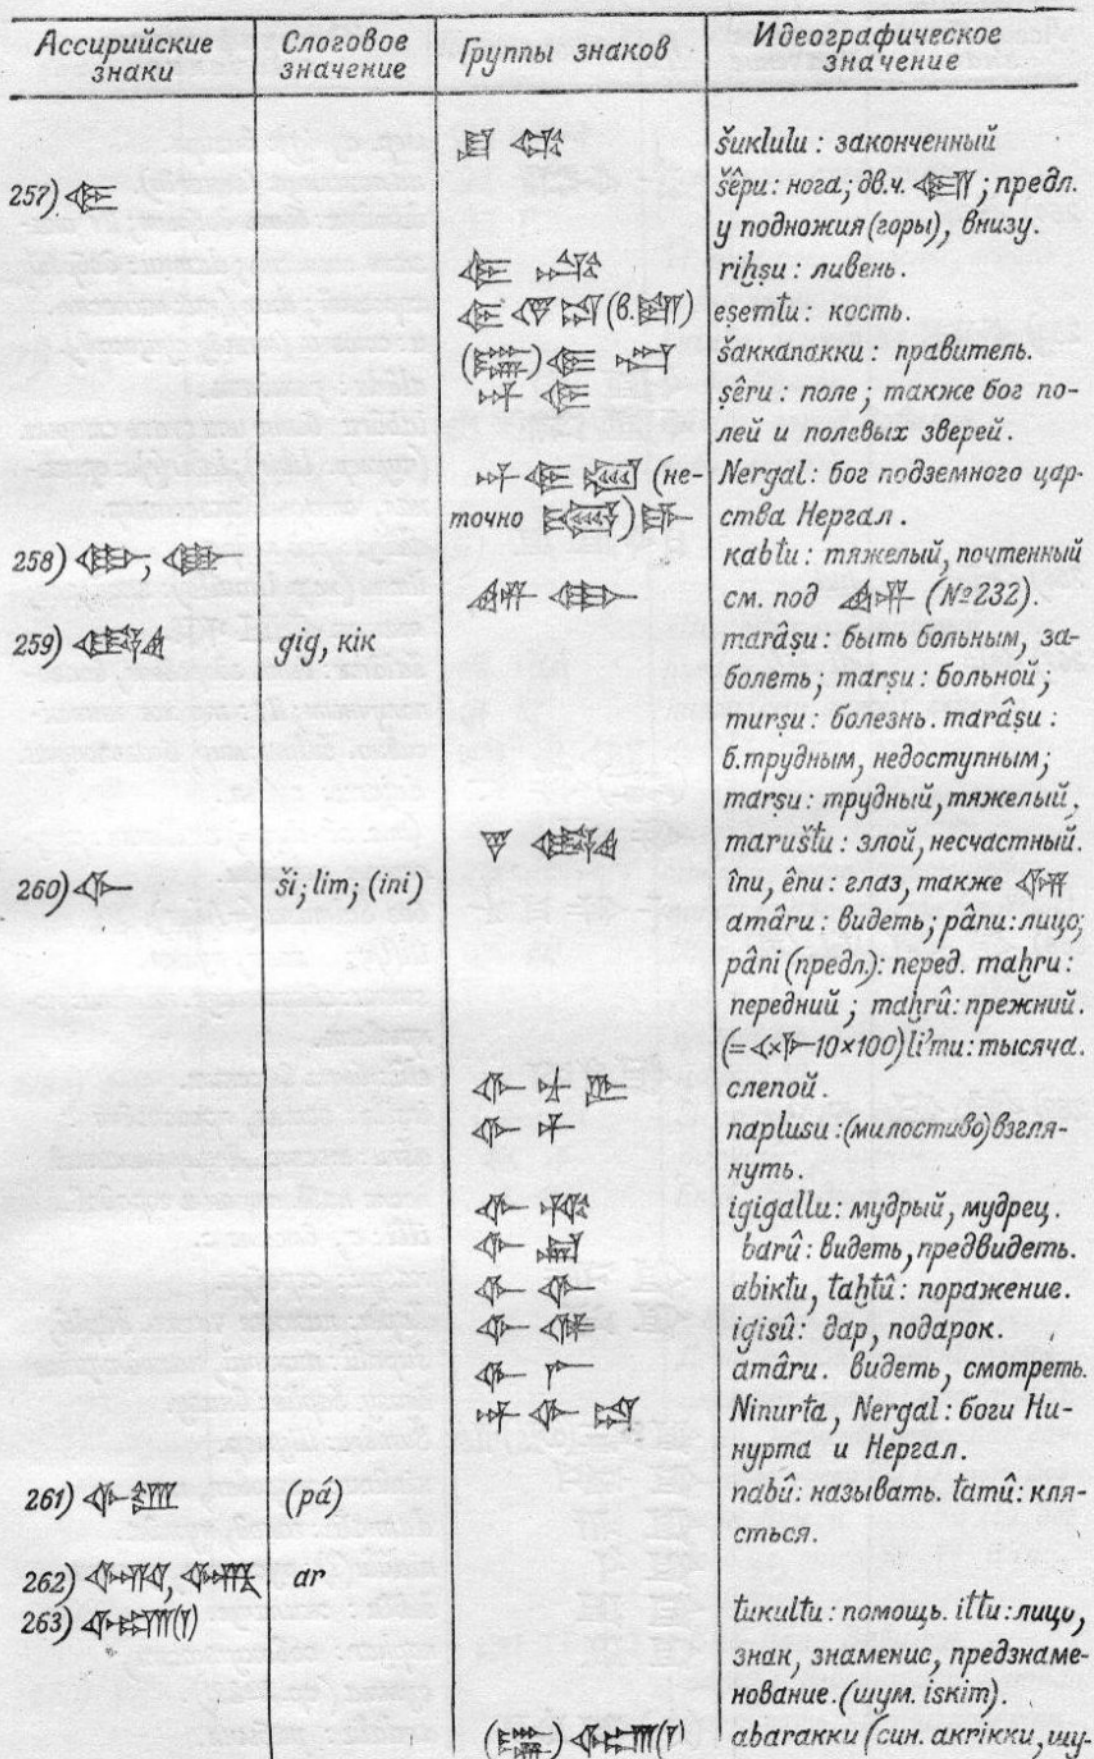 Ассирийские знаки | Слоговое значение | Группы знаков | Идеографическое значение
šuklulu : законченный
257) šêpu: нога; дв.ч. ; предл.
у подножия (горы), внизу.
riḫṣu : ливень.
(в. ) eṣemtu: кость.
( ) šakkanakku : правитель.
ṣêru : поле ; также бог по-
лей и полевых зверей.
(не- Nergal: бог подземного цар-
точно ) ства Нергал.
258) , kabtu : тяжелый, почтенный
см. под (№232).
259) gig, kik marâṣu: быть больным, за-
болеть; marṣu: больной;
murṣu: болезнь. marâṣu :
б.трудным, недоступным;
marṣu: трудный, тяжелый,
maruštu : злой, несчастный.
260) ši; lim; (ini) înu, ênu: глаз, также
amâru: видеть; pânu: лицо;
pâni (предл.): перед. maḫru :
передний ; maḫrû: прежний.
(= × 10×100) li'mu: тысяча.
слепой.
naplusu :(милостиво) взгля-
нуть.
igigallu: мудрый, мудрец.
barû : видеть, предвидеть.
abiktu, taḫtû : поражение.
igisû: дар, подарок.
amâru. видеть, смотреть.
Ninurta, Nergal : боги Ни-
нурта и Нергал.
261) (pá) nabû: называть. tamû: кля-
сться.
262) , ar
263) ( ) tukultu: помощь. ittu: лицо,
знак, знамение, предзнаме-
нование. (шум. iskim).
( ) ( ) abarakku (син. akrikku, шу-